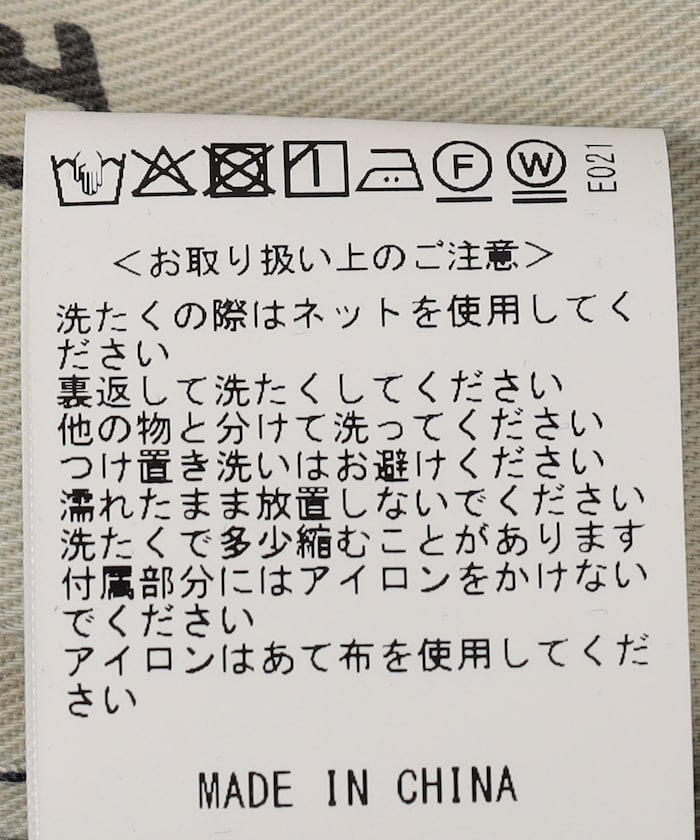 F W E021
<お取り扱い上のご注意>
洗たくの際はネットを使用してく
ださい
裏返して洗たくしてください
他の物と分けて洗ってください
つけ置き洗いはお避けください
濡れたまま放置しないでください
洗たくで多少縮むことがあります
付属部分にはアイロンをかけない
でください
アイロンはあて布を使用してくだ
さい
MADE IN CHINA